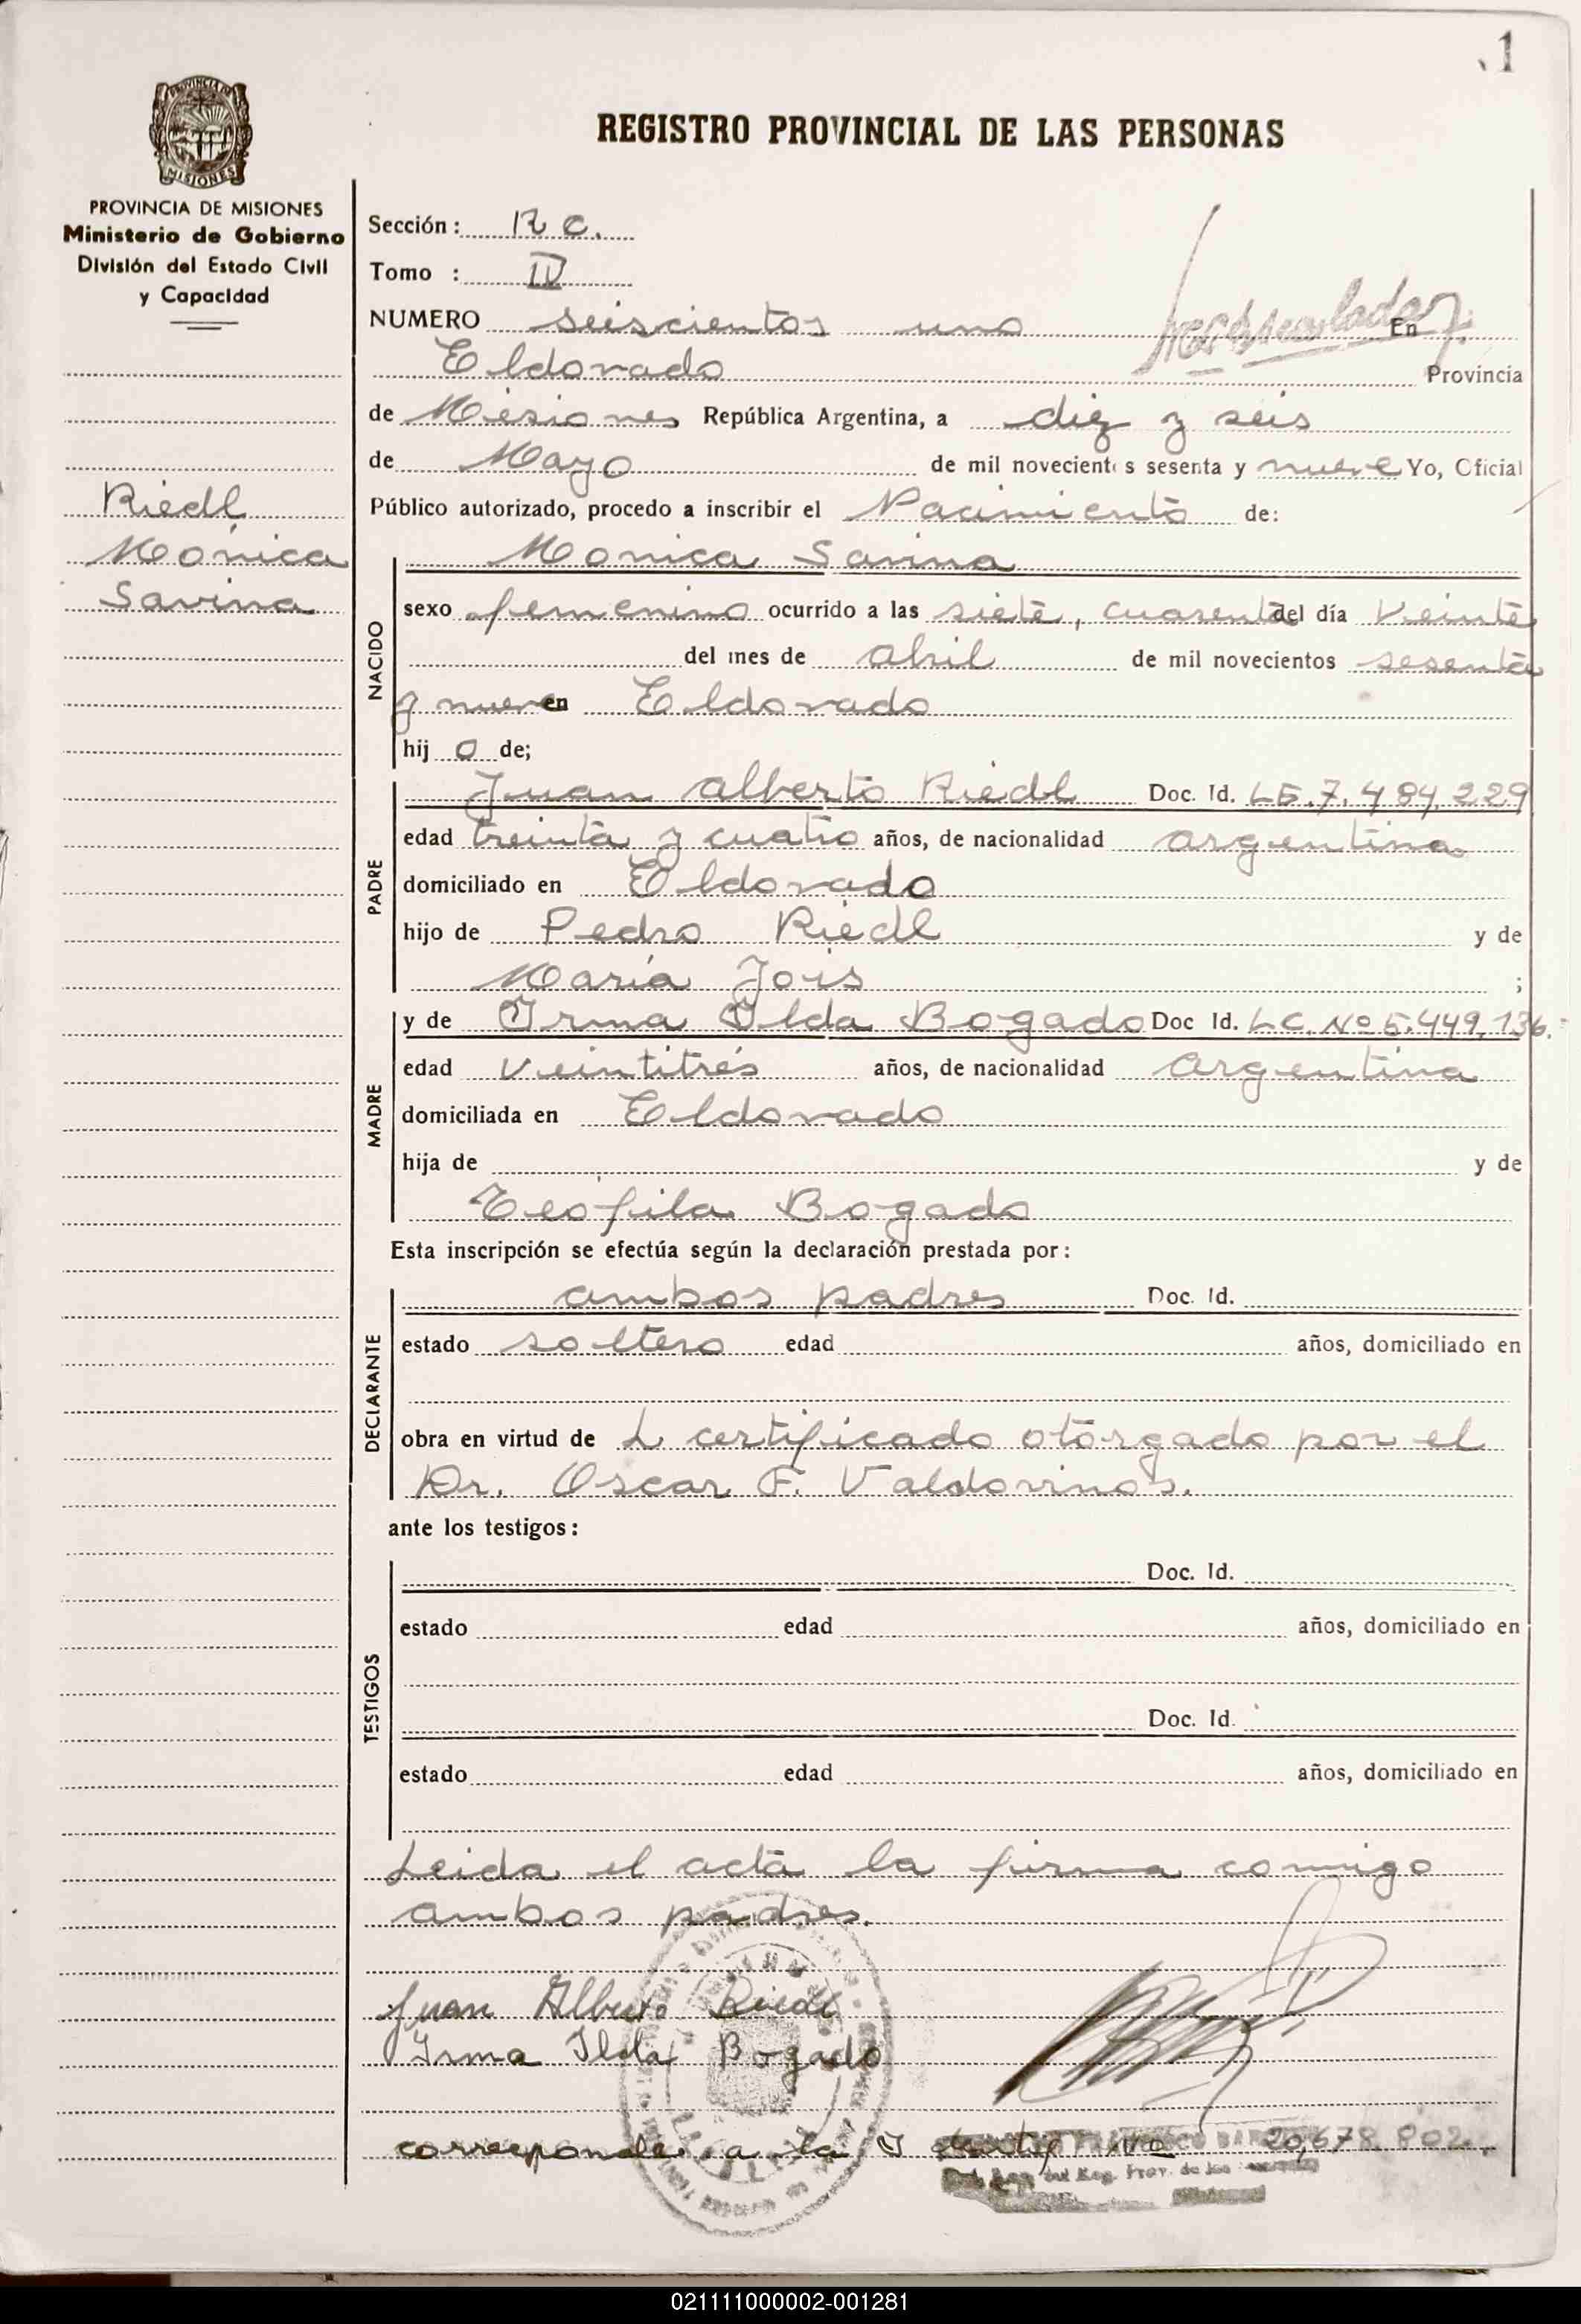 1
REGISTRO PROVINCIAL DE LAS PERSONAS
PROVINCIA DE
MISIONES
PROVINCIA DE MISIONES
Ministerio de Gobierno
División del Estado Civil
y Capacidad
Riedl
Mónica
Savina
Sección: R C.
Tomo : IV
NUMERO seiscientos uno En
Eldorado Provincia
de Misiones República Argentina, a diez y seis
de Mayo de mil novecientos sesenta y nueve Yo, Oficial
Público autorizado, procedo a inscribir el Nacimiento de:
NACIDO
Monica Savina
sexo femenino ocurrido a las siete, cuarenta del día veinte
del mes de abril de mil novecientos sesenta
y nueve en Eldorado
hij o de;
PADRE
Juan Alberto Riedl Doc. Id. LE.7.484.229
edad treinta y cuatro años, de nacionalidad argentina
domiciliado en Eldorado
hijo de Pedro Riedl y de
María Jois ;
MADRE
y de Irma Ilda Bogado Doc Id. L.C. Nº 5.449.136.
edad veintitrés años, de nacionalidad argentina
domiciliada en Eldorado
hija de y de
Teófila Bogado
Esta inscripción se efectúa según la declaración prestada por:
DECLARANTE
ambos padres Doc. Id.
estado soltero edad años, domiciliado en
obra en virtud de L certificado otorgado por el
Dr. Oscar F. Valdovinos.
ante los testigos:
TESTIGOS
Doc. Id.
estado edad años, domiciliado en
Doc. Id.
estado edad años, domiciliado en
Leida el acta la firma conmigo
ambos padres.
Juan Alberto Riedl
Irma Ilda Bogado
corresponde a la I dentif Nº 20,678.802.
021111000002-001281